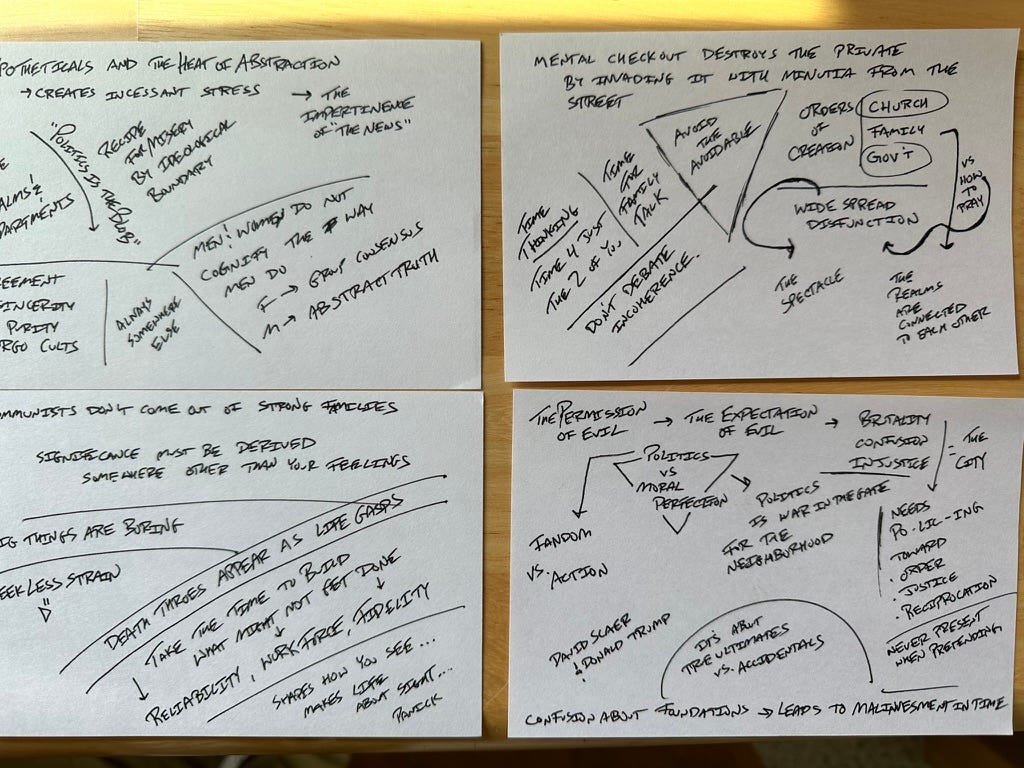 POTHETICALS AND THE HEAT OF ABSTRACTION
→ CREATES INCESSANT STRESS → THE
IMPERTINENCE
OF "THE NEWS"
"POLITICS IS THE
RECIPE
FOR MISERY
BY IDEOLOGICAL
BOUNDARY
ALMS!
PARTMENTS
MEN! WOMEN DO NOT
COGNIFY THE WAY
MEN DO
F → GROUP CONSENSUS
M → ABSTRACT TRUTH
EEMENT
SINCERITY
PURITY
RGO CULTS
ALWAYS
SOMEWHERE
ELSE
MENTAL CHECKOUT DESTROYS THE PRIVATE
BY INVADING IT WITH MINUTIA FROM THE
STREET
AVOID
THE
AVOIDABLE
TIME
THINKING
TIME
FOR
FAMILY
TALK
TIME 4 JUST
THE 2 OF YOU
DON'T DEBATE
INCOHERENCE.
ORDERS
OF
CREATION
CHURCH
FAMILY
GOV'T
VS
HOW
TO
PRAY
WIDE SPREAD
DISFUNCTION
THE
SPECTACLE
THE
REALMS
ARE
CONNECTED
TO EACH OTHER
OMMUNISTS DON'T COME OUT OF STRONG FAMILIES
SIGNIFICANCE MUST BE DERIVED
SOMEWHERE OTHER THAN YOUR FEELINGS
IG THINGS ARE BORING
EEK LESS STRAIN
DEATH THROES APPEAR AS LIFE GASPS
TAKE THE TIME TO BUILD
WHAT MIGHT NOT GET DONE
RELIABILITY, WORK FORCE, FIDELITY
SHAPES HOW YOU SEE...
MAKES LIFE
ABOUT SIGHT...
PANICK
THE PERMISSION
OF EVIL → THE EXPECTATION
OF EVIL → BRUTALITY
CONFUSION
INJUSTICE
= THE
CITY
POLITICS
VS
MORAL
PERFECTION
FANDOM
VS. ACTION
POLITICS
IS WAR IN THE GATE
FOR THE
NEIGHBURHOOD
NEEDS
PO-LIC-ING
TOWARD
· ORDER
· JUSTICE
· RECIPROCATION
NEVER PRESENT
WHEN PRETENDING
DAVID SCAER
↓ DONALD TRUMP
IT'S ABUT
THE ULTIMATES
VS. ACCIDENTALS
CONFUSION ABOUT FOUNDATIONS → LEADS TO MALINVESMENT IN TIME